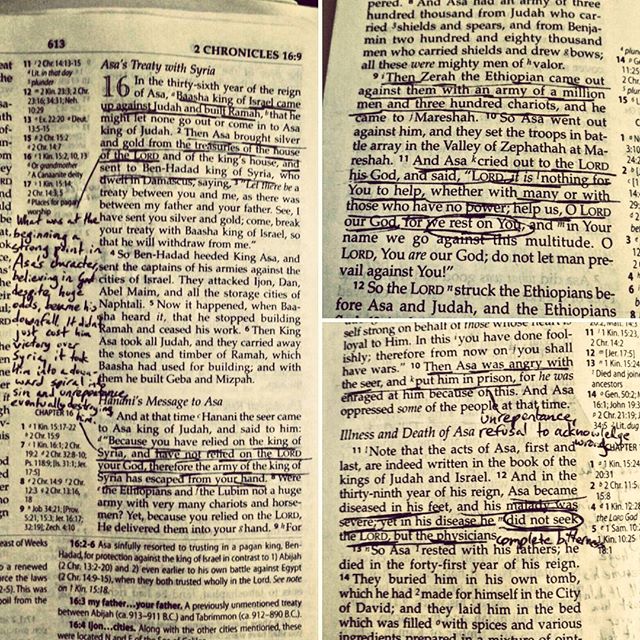 613
2 CHRONICLES 16:9
11 ᵃ2 Chr. 14:13-15
ᵃLit. in that day
plunder
12 ∞ 1 Kin. 23:3, 2 Chr.
23:16; 34:31; Neh.
10:29
13 ᵃ Ex. 22:20 • Deut.
13:5-15
15 ᵃ 2 Chr. 15:2
ᵇ 2 Chr. 14:7
16 ᵃ 1 Kin. 15:2, 10, 13
ᵃ Or grandmother
ᵇ A Canaanite deity
17 ᵃ 1 Kin. 15:14;
2 Chr. 14:3, 5
Places for pagan
worship
What was at the
beginning a
strong point in
Asa's character,
believing in God
despite huge
odds, became his
downfall. It didn't
just cost him
victory over
Syria, it took
him into a down-
ward spiral in
sin and unrepentance,
eventually destroying
him.
CHAPTER 16
1 ᵃ 1 Kin. 15:17-22
ᵇ 2 Chr. 15:9
7 ᵃ 1 Kin. 16:1; 2 Chr.
19:2 ᵇ 2 Chr. 32:8-10;
Ps. 118:9; [Is. 31:1; Jer.
17:5]
8 ᵃ 2 Chr. 14:9 ᵇ 2 Chr.
12:3 ᶜ 2 Chr. 13:16,
18
9 ᵃ Job 34:21; [Prov.
5:21; 15:3; Jer. 16:17;
32:19]; Zech. 4:10
Asa's Treaty with Syria
16 In the thirty-sixth year of the reign
of Asa, ᵃBaasha king of Israel came
up against Judah and built Ramah, ᵇthat he
might let none go out or come in to Asa
king of Judah. ² Then Asa brought silver
and gold from the treasuries of the house
of the LORD and of the king's house, and
sent to Ben-Hadad king of Syria, who
dwelt in Damascus, saying, ³ "Let there be a
treaty between you and me, as there was
between my father and your father. See, I
have sent you silver and gold; come, break
your treaty with Baasha king of Israel, so
that he will withdraw from me."
⁴ So Ben-Hadad heeded King Asa, and
sent the captains of his armies against the
cities of Israel. They attacked Ijon, Dan,
Abel Maim, and all the storage cities of
Naphtali. ⁵ Now it happened, when Baa-
sha heard it, that he stopped building
Ramah and ceased his work. ⁶ Then King
Asa took all Judah, and they carried away
the stones and timber of Ramah, which
Baasha had used for building; and with
them he built Geba and Mizpah.
Hanani's Message to Asa
⁷ And at that time ᶜHanani the seer came
to Asa king of Judah, and said to him:
ᵈ"Because you have relied on the king of
Syria, and have not relied on the LORD
your God, therefore the army of the king of
Syria has escaped from your hand. ⁸ Were
ᵉthe Ethiopians and ᶠthe Lubim not a huge
army with very many chariots and horse-
men? Yet, because you relied on the LORD,
He delivered them into your ᵍhand. ⁹ ʰFor
east of Weeks
16:2-6 Asa sinfully resorted to trusting in a pagan king, Ben-
Hadad, for protection against the king of Israel in contrast to 1) Abijah
(2 Chr. 13:2-20) and 2) even earlier to his own battle against Egypt
(2 Chr. 14:9-15), when they both trusted wholly in the Lord. See note
on 1 Kin. 15:18.
16:3 my father...your father. A previously unmentioned treaty
between Abijah (ca. 913–911 B.C.) and Tabrimmon (ca. 912–890 B.C.).
16:4 Ijon...cities. Along with the other cities mentioned, these
pered. ⁸ And Asa had an army of three
hundred thousand from Judah who car-
ried ᶠshields and spears, and from Benja-
min two hundred and eighty thousand
men who carried shields and drew ᵍbows;
all these were mighty men of ʰvalor.
⁹ ⁱThen Zerah the Ethiopian came out
against them with an army of a million
men and three hundred chariots, and he
came to ʲMareshah. ¹⁰ So Asa went out
against him, and they set the troops in bat-
tle array in the Valley of Zephathah at Ma-
reshah. ¹¹ And Asa ᵏcried out to the LORD
his God, and said, "LORD, it is ˡnothing for
You to help, whether with many or with
those who have no power; help us, O LORD
our God, for we rest on You, and ᵐin Your
name we go against this multitude. O
LORD, You are our God; do not let man pre-
vail against You!"
¹² So the LORD ⁿstruck the Ethiopians be-
fore Asa and Judah, and the Ethiopians
self strong on behalf of those whose heart is
loyal to Him. In this ⁱyou have done fool-
ishly; therefore from now on ʲyou shall
have wars." ¹⁰ Then Asa was angry with
the seer, and ᵏput him in prison, for he was
enraged at him because of this. And Asa
oppressed some of the people at that time.
unrepentance,
refusal to acknowledge
wrong
Illness and Death of Asa
¹¹ ˡNote that the acts of Asa, first and
last, are indeed written in the book of the
kings of Judah and Israel. ¹² And in the
thirty-ninth year of his reign, Asa became
diseased in his feet, and his malady was
severe; yet in his disease he ᵐdid not seek
the LORD, but the physicians.
complete bitterness
¹³ ⁿSo Asa ¹rested with his fathers; he
died in the forty-first year of his reign.
¹⁴ They buried him in his own tomb,
which he had ²made for himself in the City
of David; and they laid him in the bed
which was filled ᵒwith spices and various
ingredients prepared in a mixture of oint-